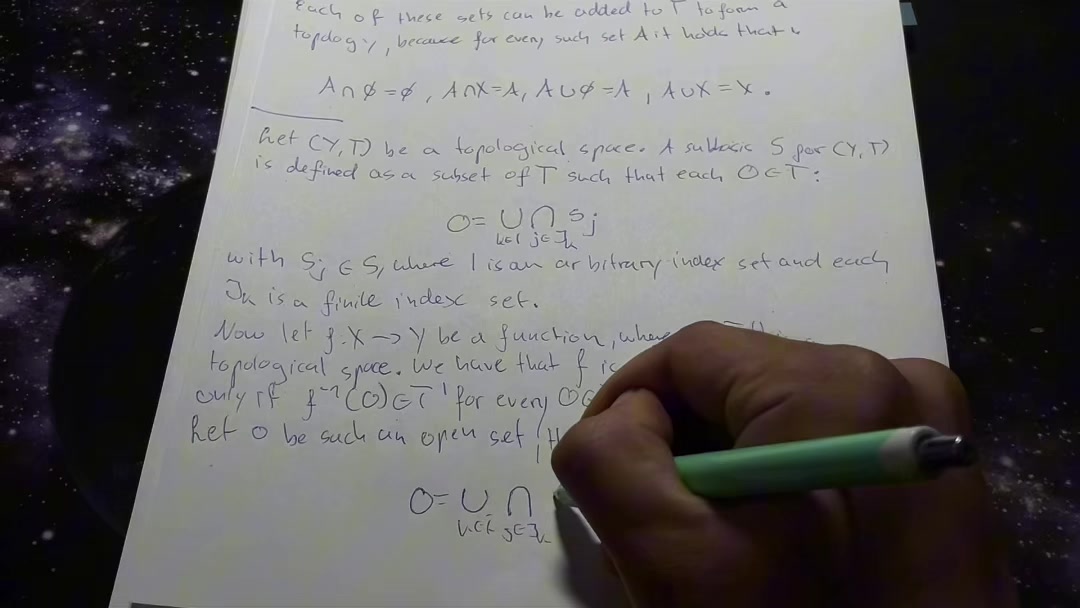 Each of these sets can be added to T to form a
topology, because for every such set A it holds that
A∩∅=∅, A∩X=A, A∪∅=A, A∪X=X.
Let (Y,T) be a topological space. A subbasis S for (Y,T)
is defined as a subset of T such that each O∈T:
O= ∪ ∩ Sj
k∈I j∈Jk
with Sj ∈ S, where I is an arbitrary index set and each
Jk is a finite index set.
Now let f: X → Y be a function, where
topological space. We have that f is
only if f⁻¹(O)∈T' for every O∈
Let O be such an open set,
O= ∪ ∩
k∈I j∈Jk